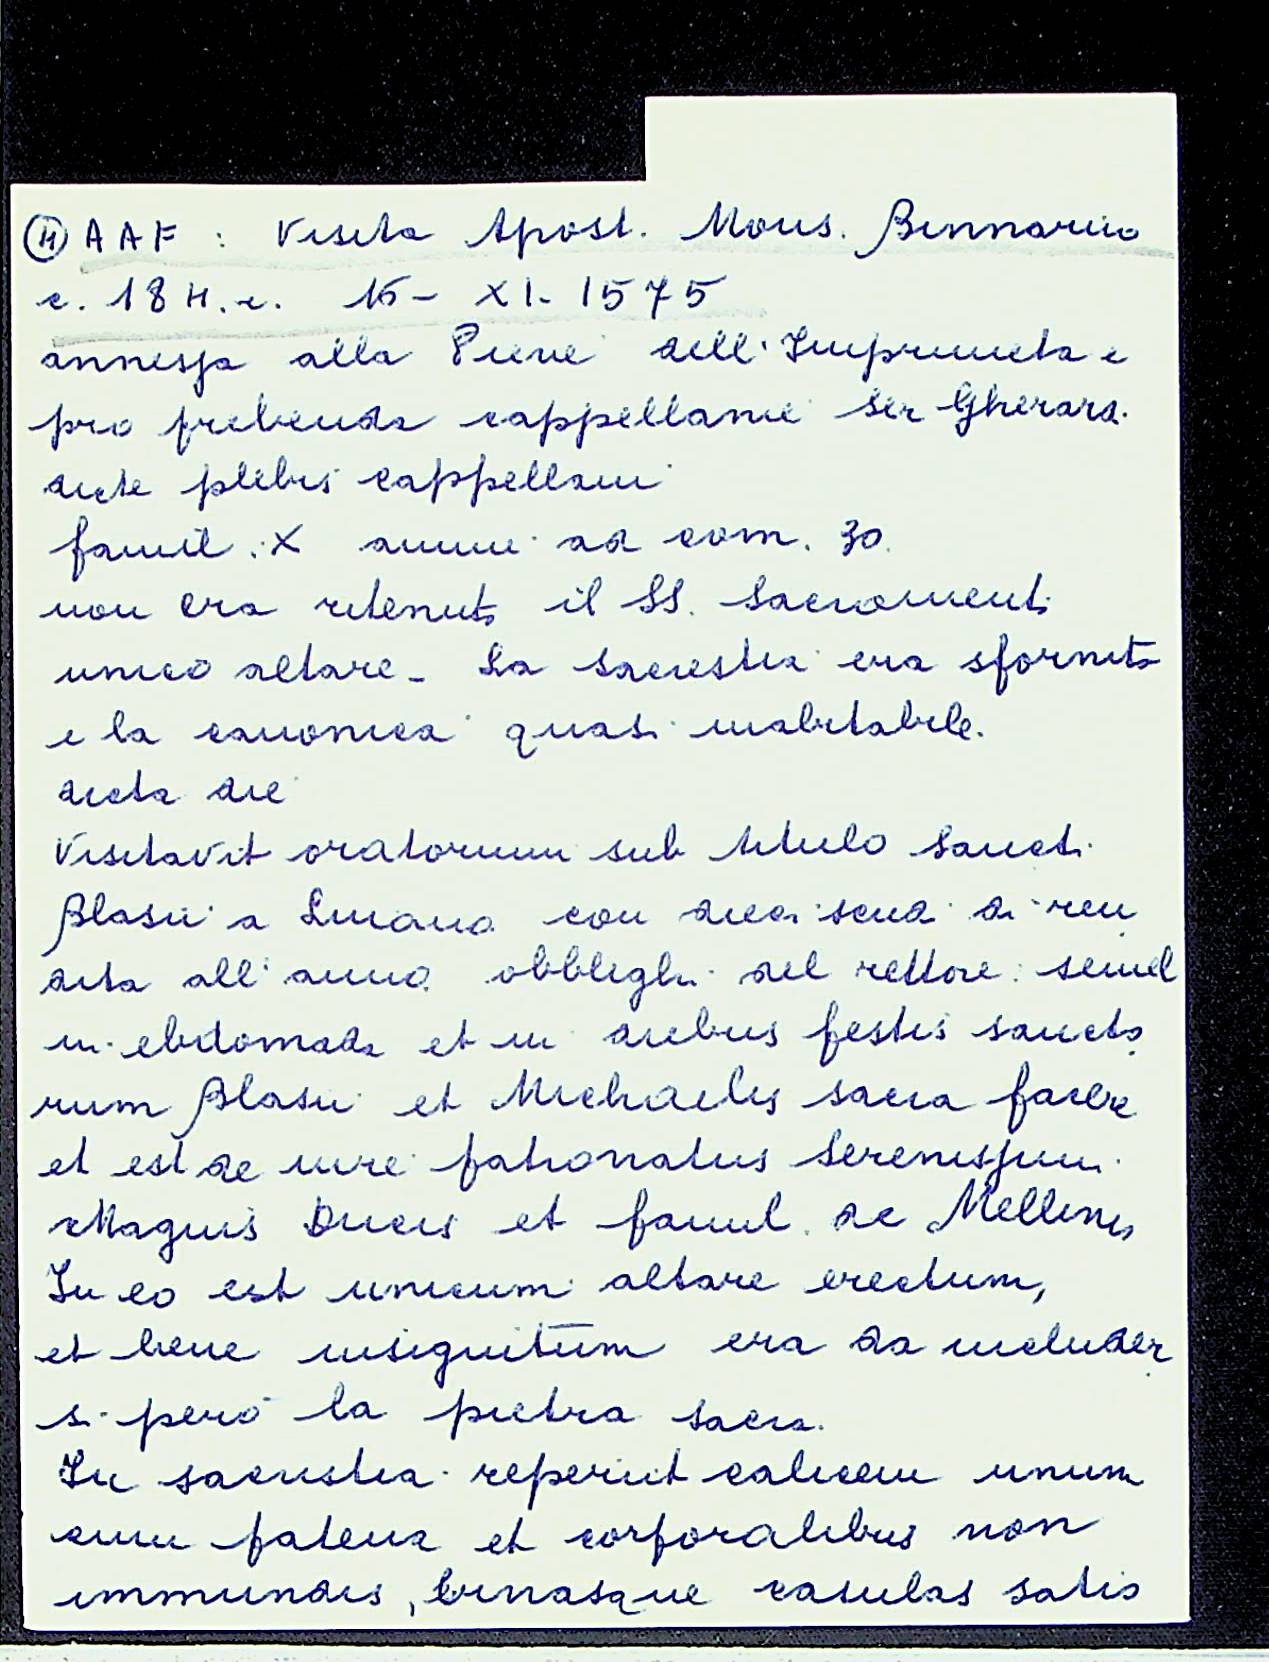 ④ AAF : Visita Apost. Mons. Binnarino
c. 184.r. 15- XI- 1575
annessa alla Pieve dell'Impruneta e
pro prebenda cappellanie ser Gherard.
dicte plebis cappellani
famil. X anime ad com. 30
non era ritenuto il SS. Sacramento
unico altare - La sacrestia era sfornita
e la canonica quasi inabitabile.
dicta die
Visitavit oratorium sub titulo Sancti
Blasii a Luiano con dieci scudi di ren
dita all'anno obblighi del rettore: semel
in ebdomada et in diebus festis sancto
rum Blasii et Michaelis sacra facere
et est de iure patronatus Serenissimi
Magnis Ducis et famil. de Mellinis
In eo est unicum altare erectum,
et bene insignitum era da includer
si però la pietra sacra.
In sacristia reperiit calicem unum
cum patena et corporalibus non
immundis, binasque casulas satis